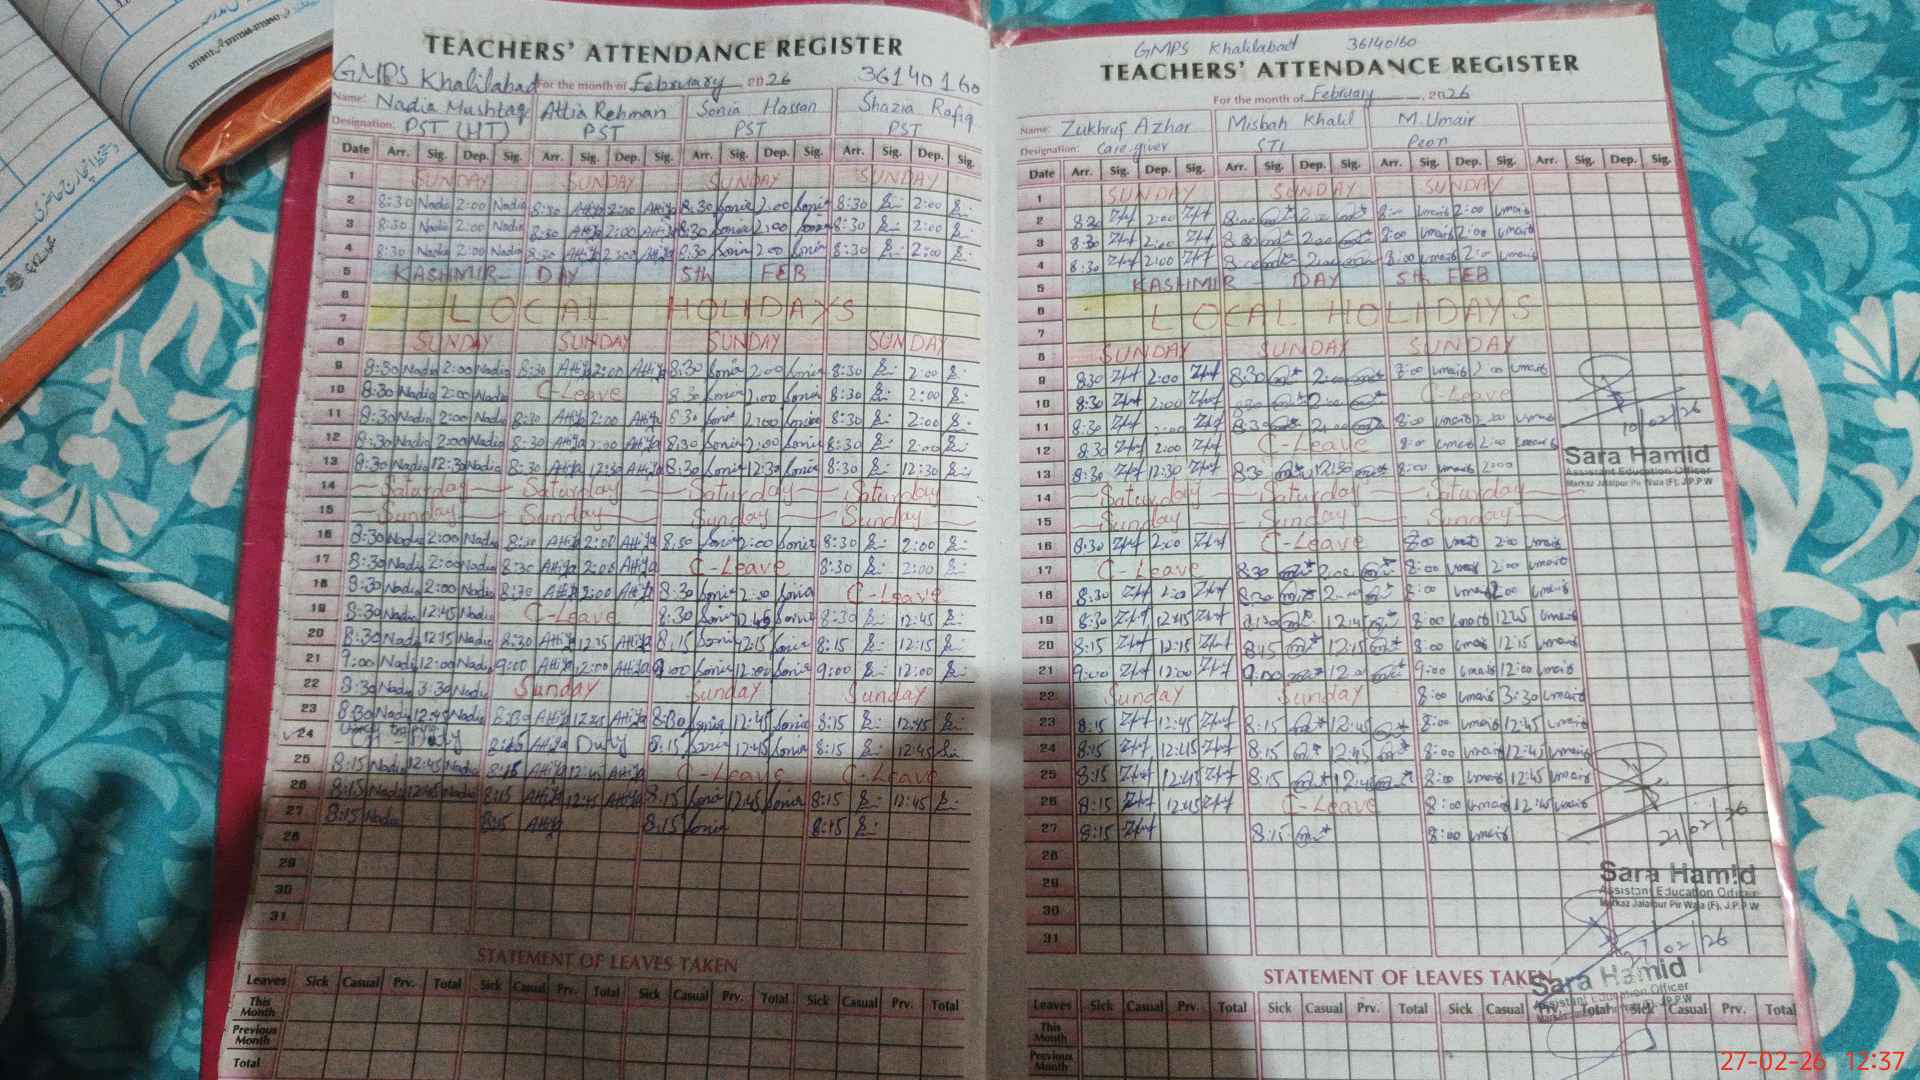 TEACHERS' ATTENDANCE REGISTER
GMPS Khalilabad For the month of February 2026 36140160
Name: Nadia Mushtaq Attia Rehman Sonia Hassan Shazia Rafiq
Designation: PST (HT) PST PST PST
Date Arr. Sig. Dep. Sig. Arr. Sig. Dep. Sig. Arr. Sig. Dep. Sig. Arr. Sig. Dep. Sig.
1 SUNDAY SUNDAY SUNDAY SUNDAY
2 8:30 Nadia 2:00 Nadia 8:30 Attiya 2:00 Attiya 8:30 Sonia 2:00 Sonia 8:30 2:00
3 8:30 Nadia 2:00 Nadia 8:30 Attiya 2:00 Attiya 8:30 Sonia 2:00 Sonia 8:30 2:00
4 8:30 Nadia 2:00 Nadia 8:30 Attiya 2:00 Attiya 8:30 Sonia 2:00 Sonia 8:30 2:00
5 KASHMIR - DAY 5th FEB
6
7 LOCAL HOLIDAYS
8 SUNDAY SUNDAY SUNDAY SUNDAY
9 8:30 Nadia 2:00 Nadia 8:30 Attiya 2:00 Attiya 8:30 Sonia 2:00 Sonia 8:30 2:00
10 8:30 Nadia 2:00 Nadia C-Leave 8:30 Sonia 2:00 Sonia 8:30 2:00
11 8:30 Nadia 2:00 Nadia 8:30 Attiya 2:00 Attiya 8:30 Sonia 2:00 Sonia 8:30 2:00
12 8:30 Nadia 2:00 Nadia 8:30 Attiya 2:00 Attiya 8:30 Sonia 2:00 Sonia 8:30 2:00
13 8:30 Nadia 12:30 Nadia 8:30 Attiya 12:30 Attiya 8:30 Sonia 12:30 Sonia 8:30 12:30
14 Saturday Saturday Saturday Saturday
15 Sunday Sunday Sunday Sunday
16 8:30 Nadia 2:00 Nadia 8:30 Attiya 2:00 Attiya 8:30 Sonia 2:00 Sonia 8:30 2:00
17 8:30 Nadia 2:00 Nadia 8:30 Attiya 2:00 Attiya C-Leave 8:30 2:00
18 8:30 Nadia 2:00 Nadia 8:30 Attiya 2:00 Attiya 8:30 Sonia 2:00 Sonia C-Leave
19 8:30 Nadia 12:45 Nadia C-Leave 8:30 Sonia 12:45 Sonia 8:30 12:45
20 8:30 Nadia 12:15 Nadia 8:30 Attiya 12:15 Attiya 8:15 Sonia 12:15 Sonia 8:15 12:15
21 9:00 Nadia 12:00 Nadia 9:00 Attiya 12:00 Attiya 9:00 Sonia 12:00 Sonia 9:00 12:00
22 8:30 Nadia 3:30 Nadia Sunday Sunday Sunday
23 8:30 Nadia 12:45 Nadia 8:30 Attiya 12:45 Attiya 8:30 Sonia 12:45 Sonia 8:15 12:45
24 Duty 8:15 Attiya Duty 8:15 Sonia 12:45 Sonia 8:15 12:45
25 8:15 Nadia 12:45 Nadia 8:15 Attiya 12:45 Attiya C-Leave C-Leave
26 8:15 Nadia 12:45 Nadia 8:15 Attiya 12:45 Attiya 8:15 Sonia 12:45 Sonia 8:15 12:45
27 8:15 Nadia 8:15 Attiya 8:15 Sonia 8:15
28
29
30
31
STATEMENT OF LEAVES TAKEN
Leaves Sick Casual Prv. Total Sick Casual Prv. Total Sick Casual Prv. Total Sick Casual Prv. Total
This Month
Previous Month
Total
GMPS Khalilabad 36140160
TEACHERS' ATTENDANCE REGISTER
For the month of February, 2026
Name: Zukhruf Azhar Misbah Khalil M.Umair
Designation: Care giver STI Peon
Date Arr. Sig. Dep. Sig. Arr. Sig. Dep. Sig. Arr. Sig. Dep. Sig. Arr. Sig. Dep. Sig.
1 SUNDAY SUNDAY SUNDAY
2 8:30 2:00 8:00 2:00 8:00 Umair 2:00 Umair
3 8:30 2:00 8:30 2:00 8:00 Umair 2:00 Umair
4 8:30 2:00 8:00 2:00 8:00 Umair 2:00 Umair
5 KASHMIR - DAY 5th FEB
6 LOCAL HOLIDAYS
7
8 SUNDAY SUNDAY SUNDAY
9 8:30 2:00 8:30 2:00 8:00 Umair 2:00 Umair
10 8:30 2:00 8:30 2:00 C-Leave
11 8:30 2:00 8:30 2:00 8:00 Umair 2:00 Umair
12 8:30 2:00 C-Leave 8:00 Umair 2:00 Umair
13 8:30 12:30 8:30 12:30 8:00 Umair 2:00
14 Saturday Saturday Saturday
15 Sunday Sunday Sunday
16 8:30 2:00 C-Leave 8:00 Umair 2:00 Umair
17 C-Leave 8:30 2:00 8:00 Umair 2:00 Umair
18 8:30 8:30 2:00 8:00 Umair 2:00 Umair
19 8:30 12:45 8:30 12:45 8:00 Umair 12:45 Umair
20 8:15 12:15 8:45 12:15 8:00 Umair 12:15 Umair
21 9:00 12:00 9:00 12:00 9:00 Umair 12:00 Umair
22 Sunday Sunday 8:00 Umair 3:30 Umair
23 8:15 12:45 8:15 12:45 8:00 Umair 12:45 Umair
24 8:15 12:45 8:15 12:45 8:00 Umair 12:45 Umair
25 8:15 12:45 8:15 12:45 8:00 Umair 12:45 Umair
26 8:15 12:45 C-Leave 8:00 Umair 12:45 Umair
27 8:15 8:15 8:00 Umair
28
29
30
31
10/02/26
Sara Hamid
Assistant Education Officer
Markaz Jalalpur Pir Wala (F), J.P.P.W
21/02/26
Sara Hamid
Assistant Education Officer
Markaz Jalalpur Pir Wala (F), J.P.P.W
02/26
Sara Hamid
Assistant Education Officer
STATEMENT OF LEAVES TAKEN
Leaves Sick Casual Prv. Total Sick Casual Prv. Total Sick Casual Prv. Total Sick Casual Prv. Total
This Month
Previous Month
27-02-26 12:37